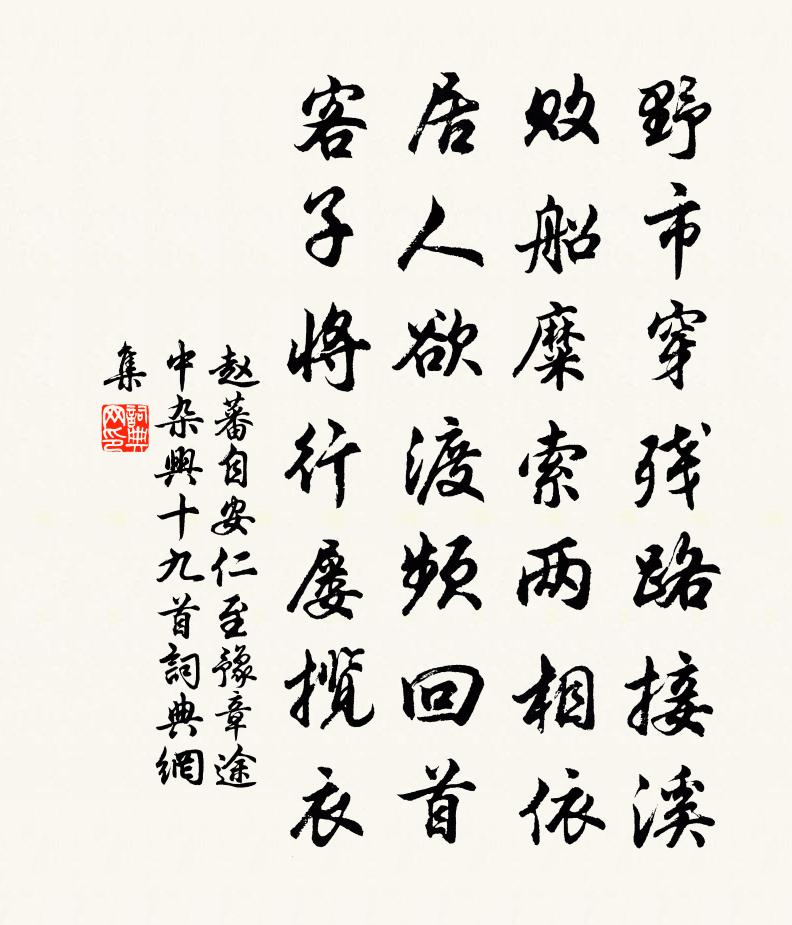 野市穿残路接溪
败船糜索两相依
居人欲渡频回首
客子将行屡揽衣
赵蕃自安仁至豫章途
中杂興十九首詞典網
集
詞典
网印